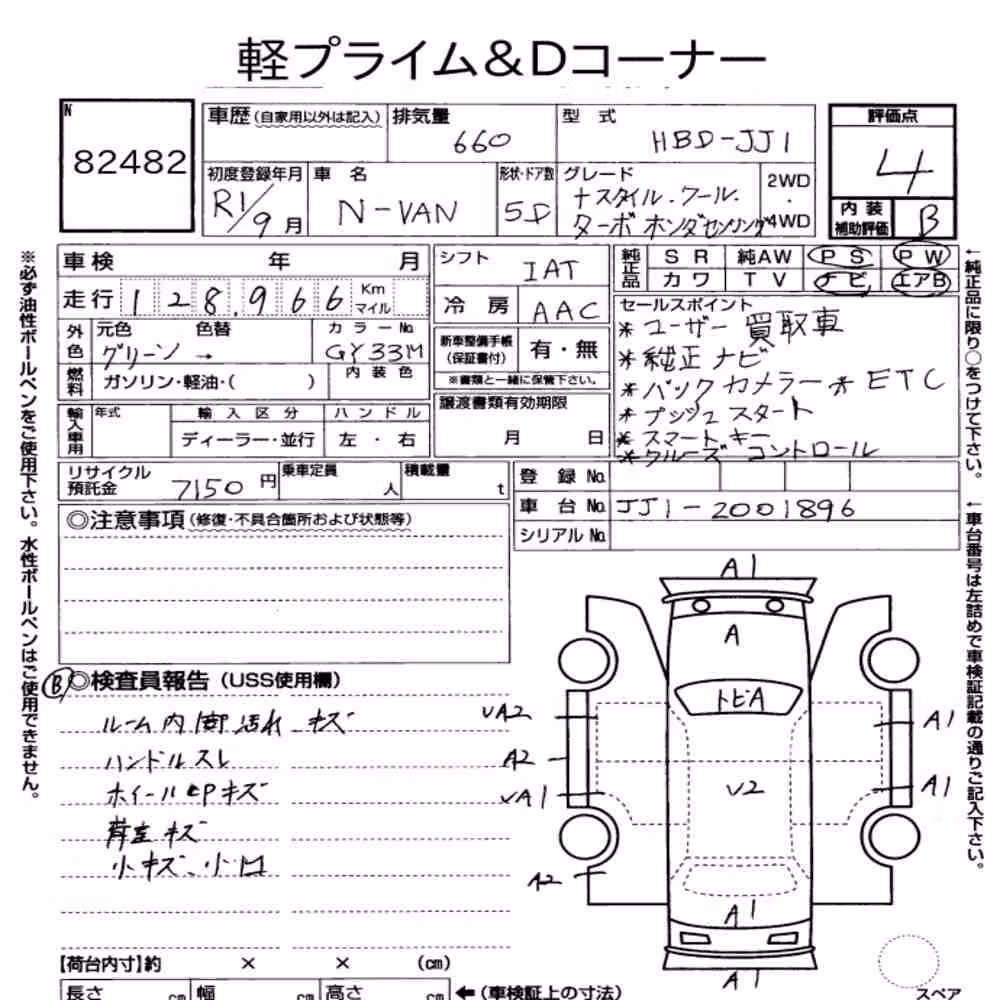 軽プライム&Dコーナー
N
82482
車歴(自家用以外は記入)
排気量
660
型式
HBD-JJ1
評価点
4
初度登録年月
R1/9月
車名
N-VAN
形状・ドア数
5D
グレード
+スタイル.クール.
ターボ ホンダセンシング
2WD
・
4WD
内装
補助評価
B
※必ず油性ボールペンをご使用下さい。水性ボールペンはご使用できません。
車検 年 月
走行 128,966 Km マイル
外色
元色 色替
グリーン →
カラーNo.
GY33M
燃料
ガソリン・軽油・( )
内装色
輸入車用
年式
輸入区分
ディーラー・並行
ハンドル
左・右
シフト
IAT
冷房
AAC
新車整備手帳
(保証書付)
有・無
※書類と一緒に保管下さい。
譲渡書類有効期限
月 日
純正品
SR 純AW PS PW
カワ TV ナビ エアB
セールスポイント
*ユーザー 買取車
*純正ナビ
*バックカメラー * ETC
*プッシュスタート
*スマートキー
*クルーズコントロール
←純正品に限り○をつけて下さい。
←車台番号は左詰めで車検証記載の通りご記入下さい。
リサイクル
預託金
7150円
乗車定員
人
積載量
t
登録No.
車台No.
JJ1-2001896
シリアルNo.
◎注意事項(修復・不具合箇所および状態等)
B
◎検査員報告(USS使用欄)
ルーム内 汚れ キズ
ハンドルスレ
ホイールcPキズ
キズ
小キズ、小凹
A1
A
トビA
UA2
A1
A2
V2
A1
A2
A1
A1
【荷台内寸】約 × × (cm)
長さ cm 幅 cm 高さ cm ←(車検証上の寸法)
スペア